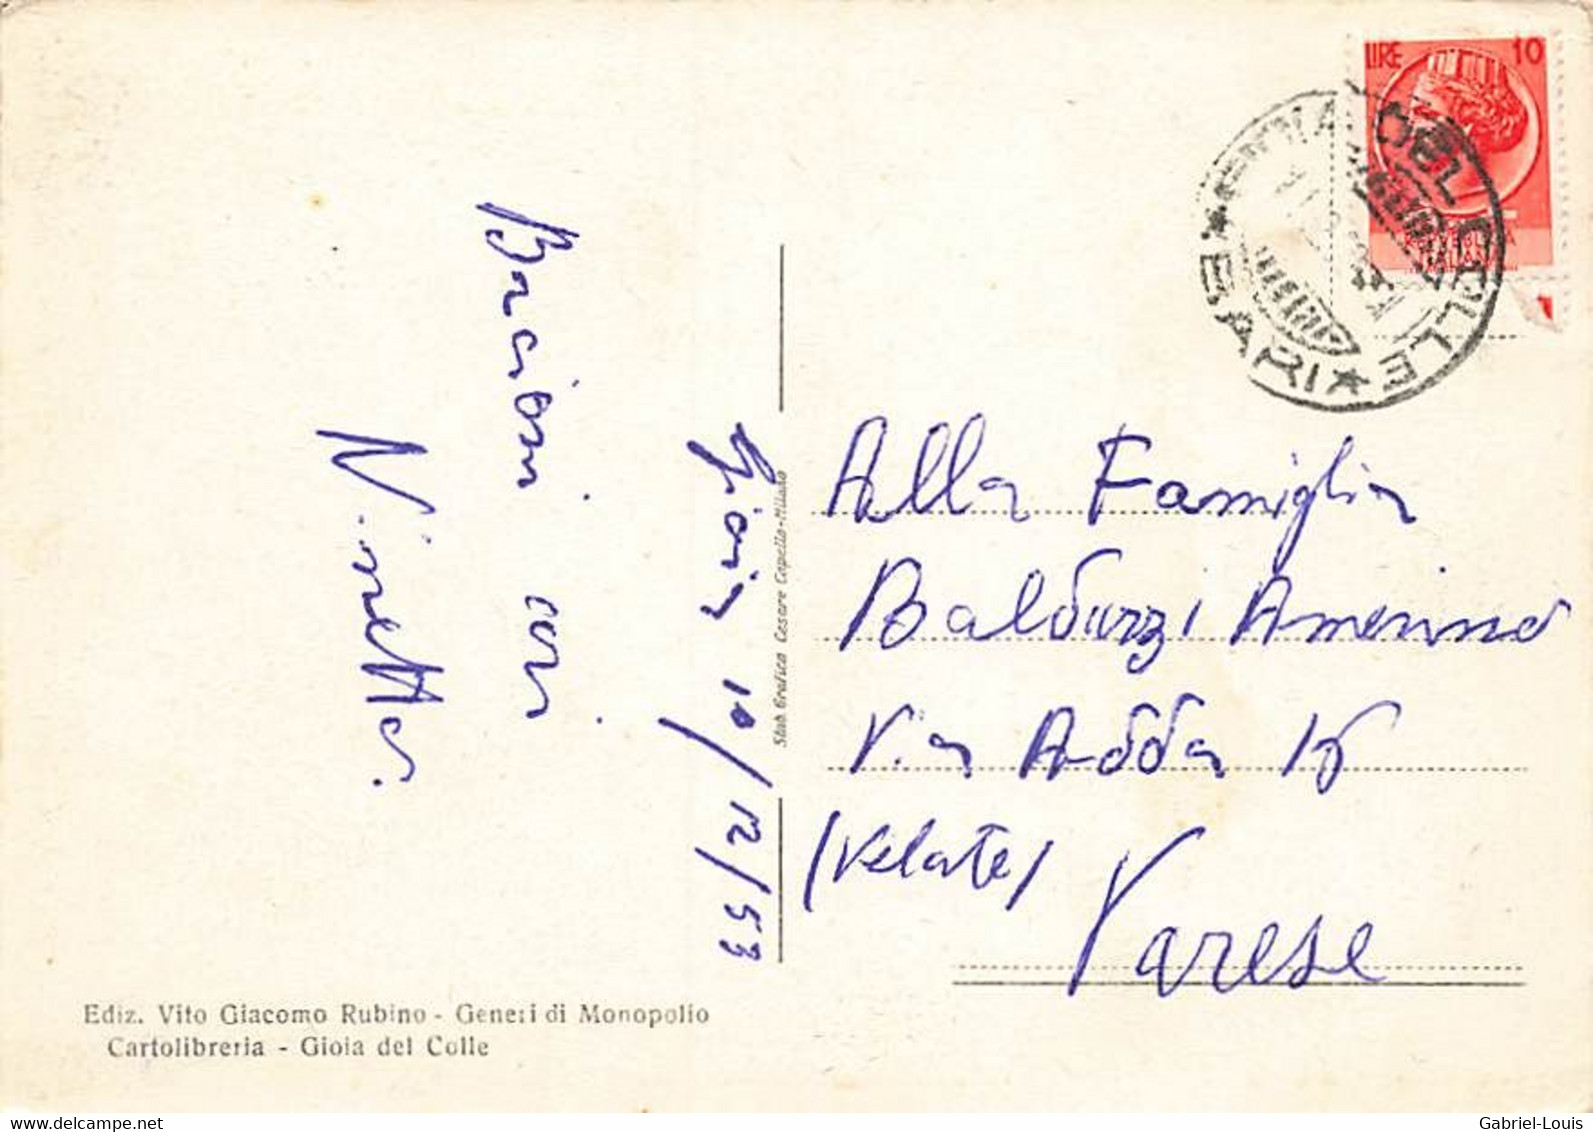 LIRE 10
REPUBBLICA
ITALIANA
GIOIA DEL COLLE
★ BARI ★
Bacioni cari
Ninetta.
Gioia 10/12/53
Stab. Grafico Cesare Capello-Milano
Alla Famiglia
Balduzzi
Via Adda
(Velate)
Varese
Ediz. Vito Giacomo Rubino - Generi di Monopolio
Cartolibreria - Gioia del Colle
delcampe.net
Gabriel-Louis